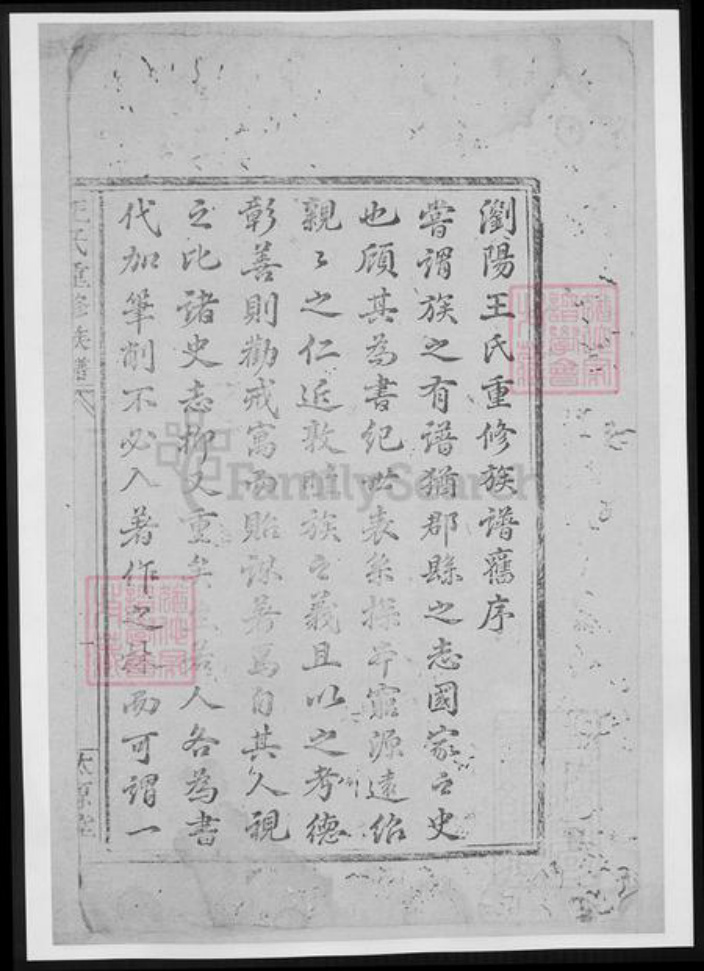 瀏陽王氏重修族譜舊序
嘗謂族之有譜猶郡縣之志國家之史
也顧其為書紀世表系探本窮源遠紹
親々之仁近敦睦族之義且以之考德
彰善則勸戒寓而貽謀善焉自其人視
之比諸史志抑又重矣人各為書
代加筆削不必入著作之林而可謂一
王氏重修族譜
一
太原堂
FamilySearch